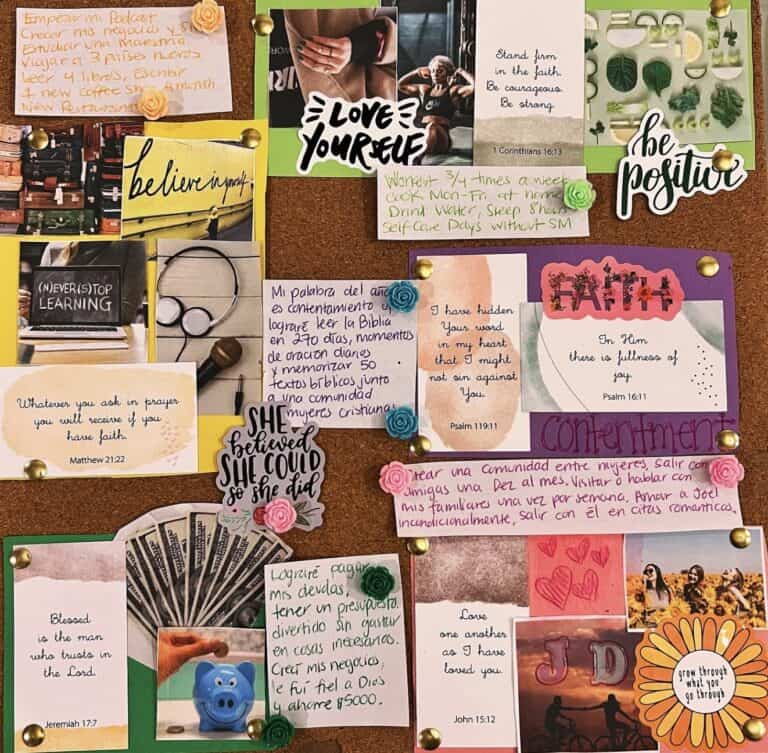 Empezar mi Podcast
Crecer mis negocios y
Estudiar una maestria
Viajar a 3 países nuevos
Leer 4 libros, escribir
1 new coffee shop a month
New Restaurant
LOVE
YOURSELF
Stand firm
in the faith.
Be courageous.
Be strong.
1 Corinthians 16:13
be
positive
Workout 3/4 times a week
Cook Mon-Fri at home
Drink Water, Sleep 8 hours
Self Care Days without SM
believe in yourself
(N)EVER(S)TOP
LEARNING
Whatever you ask in prayer
you will receive if you
have faith.
Matthew 21:22
Mi palabra del año
es contentamiento y
lograré leer la Biblia
en 270 días, momentos
de oración diarios
y memorizar 50
textos bíblicos junto
a una comunidad
mujeres cristianas
I have hidden
Your word
in my heart
that I might
not sin against
You.
Psalm 119:11
FAITH
In Him
there is fullness of
joy.
Psalm 16:11
contentment
SHE
believed
SHE COULD
so she did
Crear una comunidad entre mujeres, salir con
amigas una vez al mes. Visitar o hablar con
mis familiares una vez por semana. Amar a Joel
incondicionalmente, salir con él en citas romanticas.
Blessed
is the man
who trusts in
the Lord.
Jeremiah 17:7
Lograré pagar
mis deudas,
tener un presupuesto
divertido sin gastar
en cosas inecesarias.
Crecí mis negocios,
le fui fiel a Dios
y ahorre $5000.
Love
one another
as I have
loved you.
John 15:12
J D
grow through
what you
go through